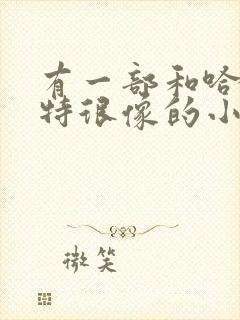 有一部和哈
特很像的小
微笑